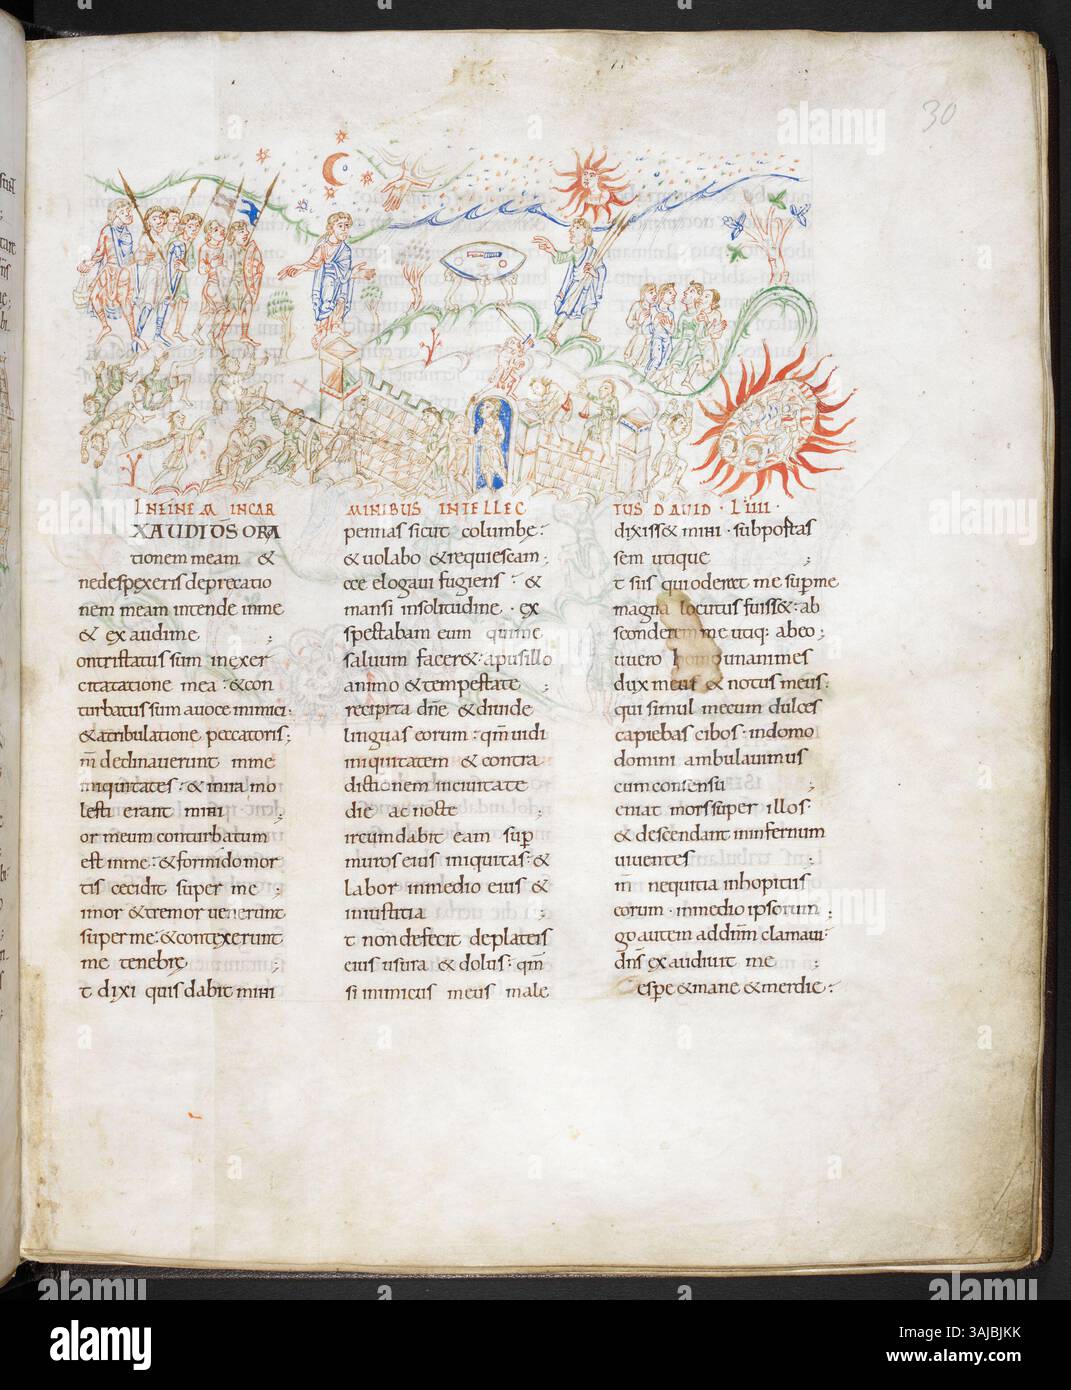 30
IN FINEM IN CAR
XAUDI DS ORA
tionem meam &
nedespexeris deprecatio
nem meam intende inme
& exaudime ;
ontristatus sum inexer
citatatione mea : & con
turbatus sum avoce inimici
& atribulatione peccatoris ;
qm̄ declinaverunt inme
iniquitates : & inira mo
lesti erant mihi
or meum conturbatum
est inme : & formido mor
tis cecidit super me ;
imor & tremor venerunt
super me : & contexerunt
me tenebre ;
t dixi quis dabit mihi
MINIBUS INTELLEC
pennas sicut columbe :
& volabo & requiescam ·
cce elogavi fugiens : &
mansi insolitudine · ex
spectabam eum quime
salvum facer& : apusillo
animo & tempestate ;
recipita dn̄e & divide
linguas eorum : qm̄ vidi
iniquitatem & contra
dictionem incivitate
die ac nocte
ircundabit eam sup̄
muros eius iniquitas : &
labor inmedio eius &
iniustitia ;
t non defecit deplateis
eius usura & dolus : qm̄
si inimicus meus male
TUS DAVID · LIIII ·
dixiss& mihi · subportas
sem utique ;
t si is qui oder& me sup̄ me
magna locutus fuiss& : ab
sconderem me utiq: ab eo ;
u vero homo unanimes
dux meus & notus meus :
qui simul mecum dulces
capiebas cibos · indomo
domini ambulavimus
cum consensu ;
eniat mors super illos ·
& descendant ininfernum
viventes ;
qm̄ nequitia inhopitiis
eorum · inmedio ipsorum ;
go autem addn̄m clamavi :
& dn̄s exaudivit me ;
espe & mane & merdie :
alamy
Image ID: 3AJBJKK
www.alamy.com